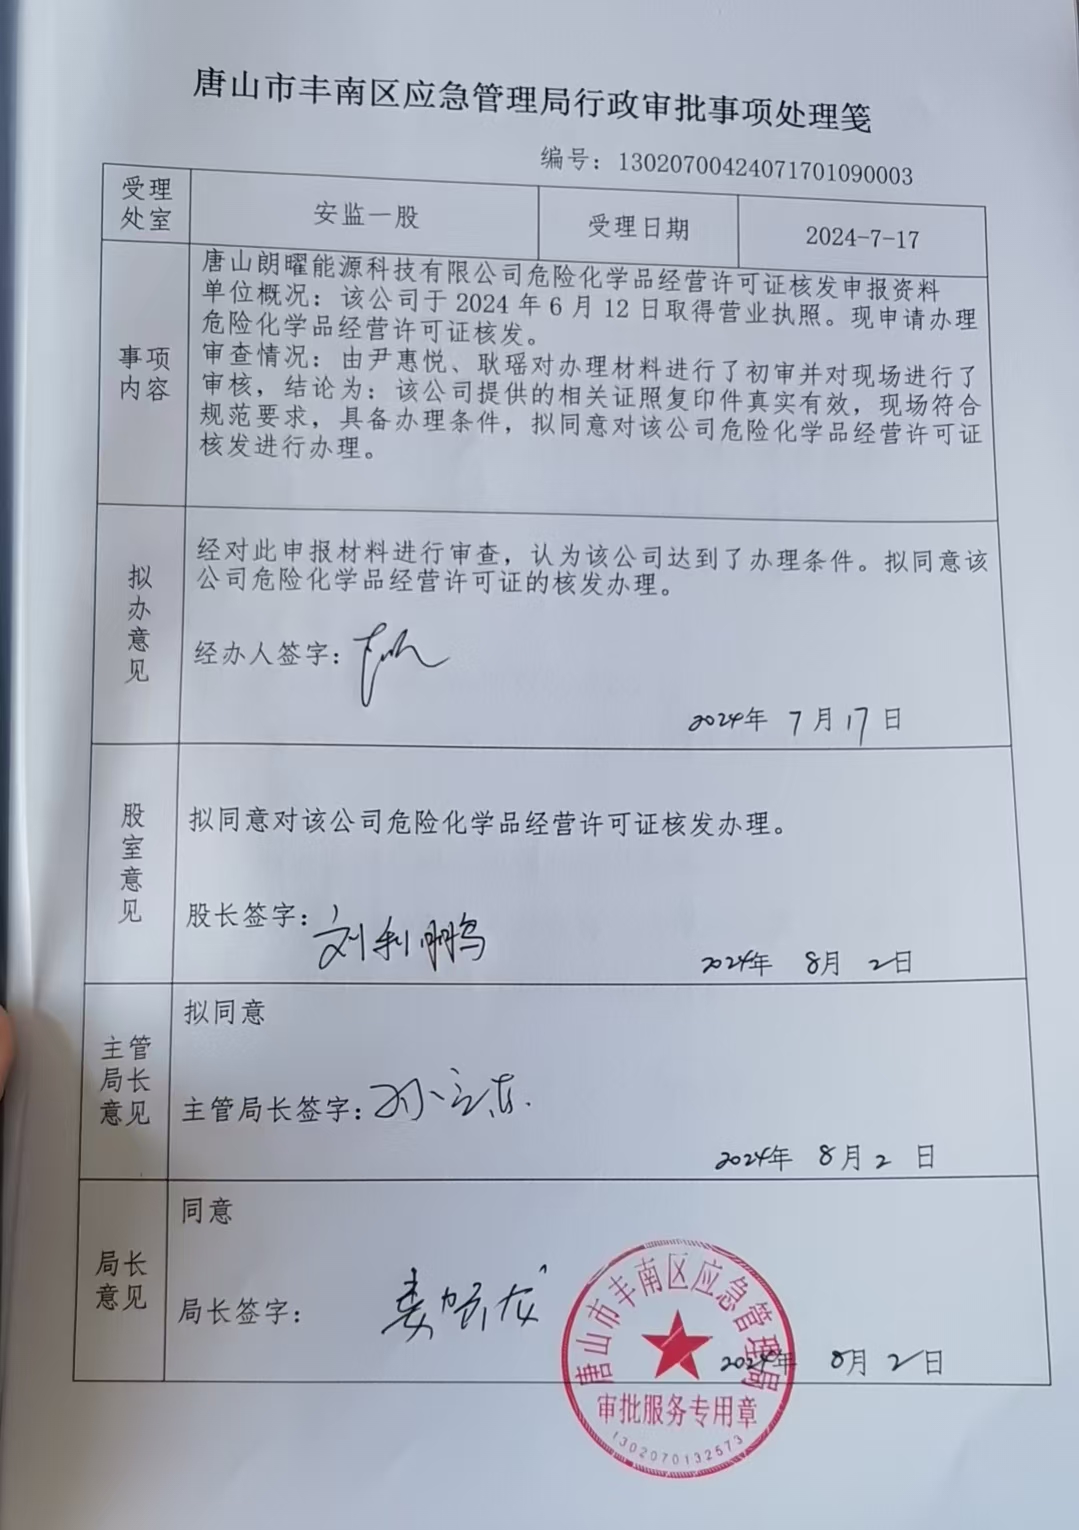 唐山市丰南区应急管理局行政审批事项处理笺
编号：13020700424071701090003
受理
处室
安监一股
受理日期
2024-7-17
事项
内容
唐山朗曜能源科技有限公司危险化学品经营许可证核发申报资料
单位概况：该公司于 2024 年 6 月 12 日取得营业执照。现申请办理
危险化学品经营许可证核发。
审查情况：由尹惠悦、耿瑶对办理材料进行了初审并对现场进行了
审核，结论为：该公司提供的相关证照复印件真实有效，现场符合
规范要求，具备办理条件，拟同意对该公司危险化学品经营许可证
核发进行办理。
拟
办
意
见
经对此申报材料进行审查，认为该公司达到了办理条件。拟同意该
公司危险化学品经营许可证的核发办理。
经办人签字：
2024年 7月17日
股
室
意
见
拟同意对该公司危险化学品经营许可证核发办理。
股长签字：刘利鹏
2024年 8月 2日
主管
局长
意见
拟同意
主管局长签字：
2024年 8月2 日
局长
意见
同意
局长签字：
2024年 8月2日
唐山市丰南区应急管理局
审批服务专用章
1302070132573